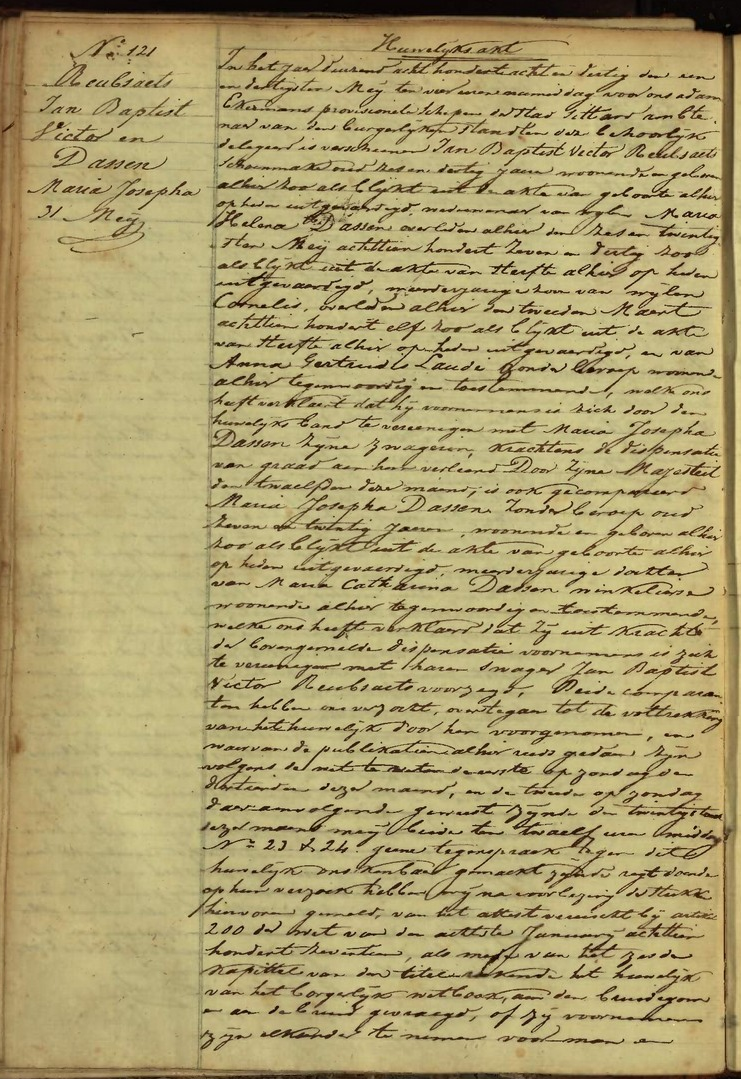 No. 121
Reubsaets
Jan Baptist
Victor en
Dassen
Maria Josepha
31 Meij
Huwelijksakt
In het jaar duizend acht hondert acht en dertig den een
en dertigsten Meij ten vier uren namiddag voor ons adam
Ekermans provisionele schepen der stad Sittard ambte-
naar van den burgerlijken stand ten deze behoorlijk
delegeerd is verscheenen Jan Baptist Victor Reubsaets
Schoenmaker oud zes en dertig jaren woonende en geboren
alhier zoo als blijkt uit de akte van geboorte alhier
op heden uitgevaardigd, weduwenaar van wijlen Maria
Helena Dassen overleden alhier den zes en twintig
sten Meij achttien hondert zeven en dertig zoo
als blijkt uit de akte van sterfte alhier op heden
uitgevaardigd, meerderjarige zoon van wijlen
Cornelis, overleden alhier den tweeden Maert
achttien hondert elf zoo als blijkt uit de akte
van sterfte alhier op heden uitgevaardigd, en van
Anna Gertrudis Laude zonder beroep woonende
alhier tegenwoordig en toestemmende, welk ons
heeft verklaert dat hij voornemens is zich door den
huwelijks band te vereenigen met Maria Josepha
Dassen zijne zwagerin, krachtens de dispensatie
van graad aan hem verleend Door zijne Majesteit
den twaelfden deze maand; is ook gecompareerd
Maria Josepha Dassen zonder beroep oud
zeven en twintig jaeren, woonende en geboren alhier
zoo als blijkt uit de akte van geboorte alhier
op heden uitgevaardigd, meerderjarige dochter
van Maria Catharina Dassen winkelierse
woonende alhier tegenwoordig en toestemmende,
welke ons heeft verklaard dat zij uit krachte
der bovengemelde dispensatie voornemens is zich
te vereenigen met haren swager Jan Baptist
Victor Reubsaets voorzegd, Beide comparan
ten hebben ons verzocht, over te gaan tot de voltrekking
van het huwelijk door hen voorgenomen, en
waarvan de publikatien alhier reeds gedaen zijn
volgens de wet te weten de eerste op zondag den
dertienden dezer maand, en de tweede op zondag
daeraenvolgende geweest zijnde den twintigsten
dezer maend meij beide ten twaelf uren middag
No. 23 & 24. geene tegenspraek tegen dit
huwelijk ons kenbaer gemaekt zijnde regt doende
op hun verzoek hebben wij na voorlezing der stukken
hiervoren gemeld, van het attest vereischt bij artikel
200 der wet van den achtste January achttien
hondert zeventien, als mede van het zesde
Kapittel van den titel rakende het huwelijk
van het Borgerlijk wetboek, aan den bruidegom
en aen de bruid gevraegd, of zij voornemens
zijn elkander te nemen voor man en